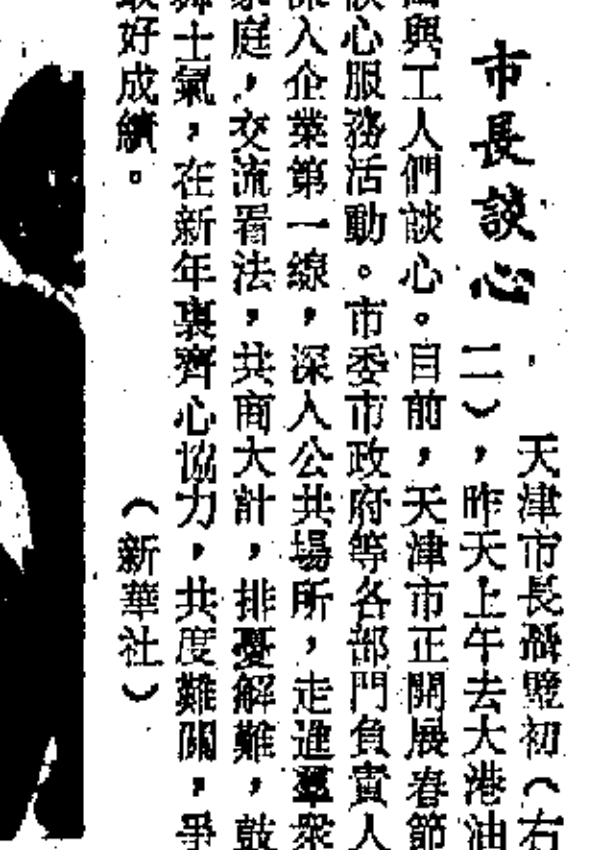 市長談心
天津市長聶璧初（右
二），昨天上午去大港油
與工人們談心。目前，天津市正開展春節
談心服務活動。市委市政府等各部門負責人
深入企業第一線，深入公共場所，走進羣衆
家庭，交流看法，共商大計，排憂解難，鼓
舞士氣，在新年裏齊心協力，共度難關，爭
取好成績。
（新華社）